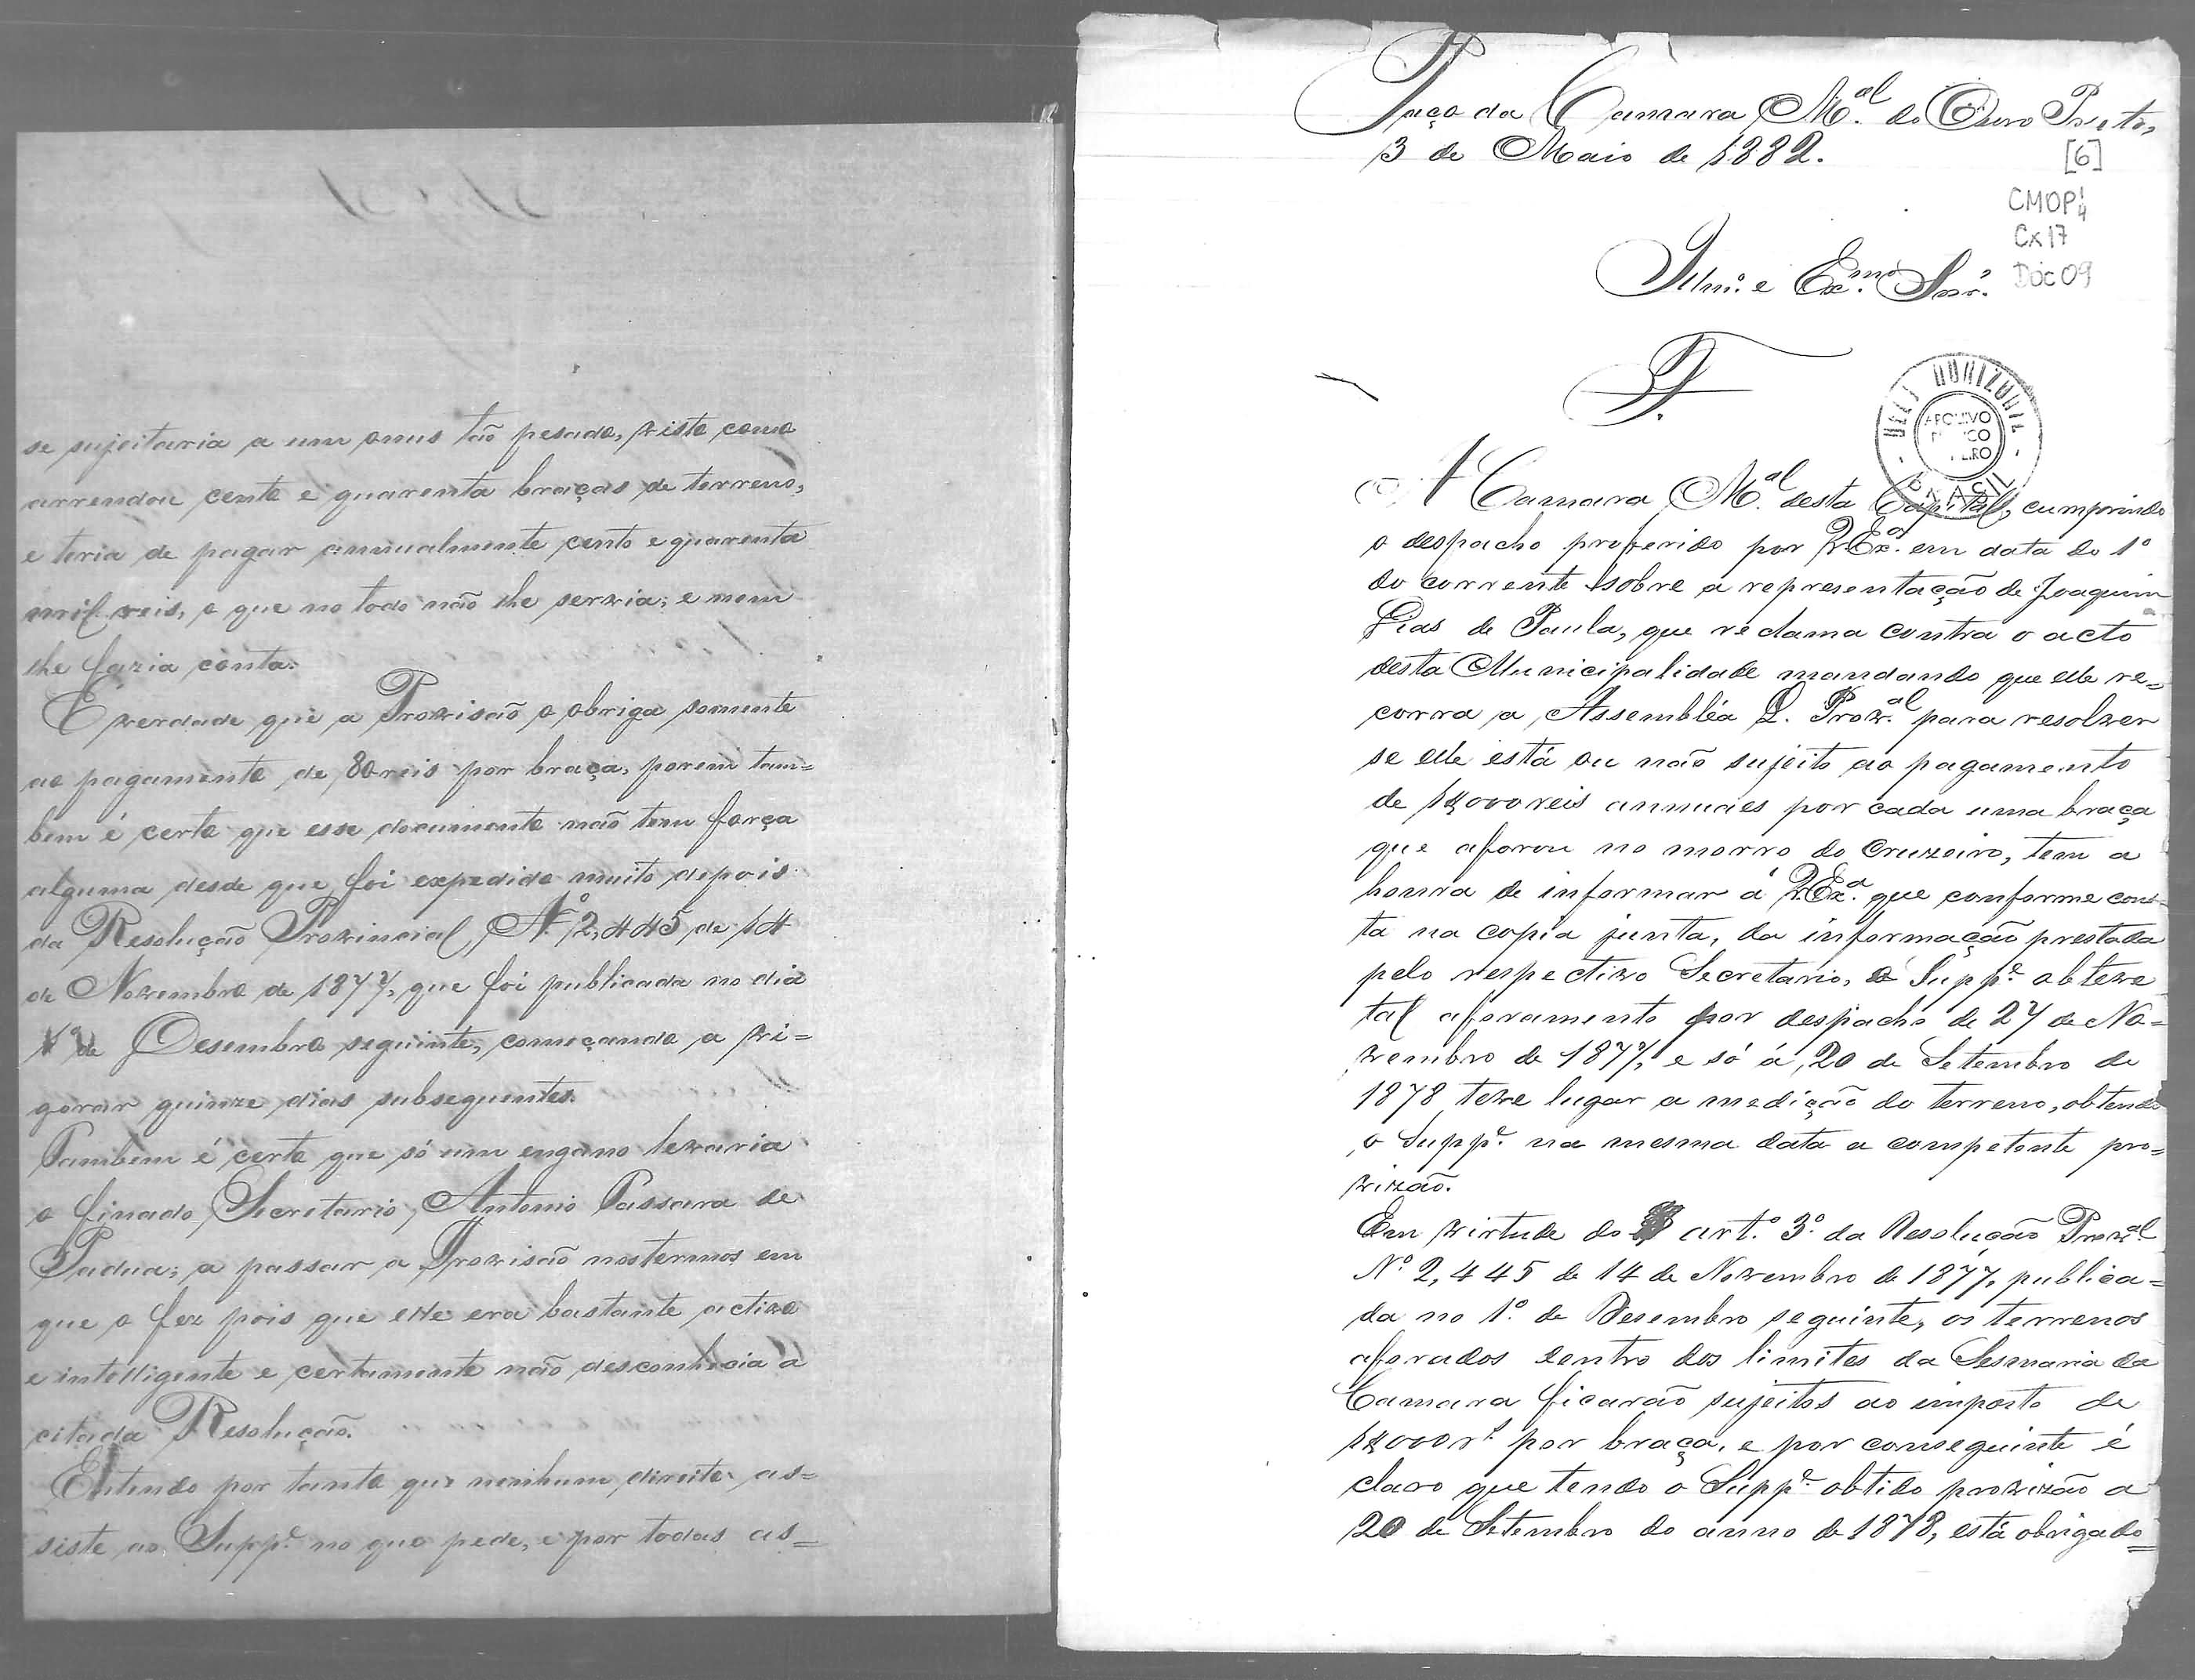 se sujeitaria a um onus tão pesado, visto como
arrendou cento e quarenta braças de terreno,
e teria de pagar annualmente cento e quarenta
mil reis, o que no todo não lhe servia; e nem
lhe fazia conta.
É verdade que a Provisão o obriga somente
ao pagamento de 80 reis por braça, porem tam=
bem é certo que esse documento não tem força
alguma desde que foi expedido muito depois
da Resolução Provincial, Nº 2,445 de 14
de Novembro de 1877, que foi publicada no dia
1º de Desembro seguinte, começando a vi=
gorar quinze dias subsequentes.
Tambem é certo que só um engano levaria
o finado Secretario, Antonio Passara de
Padua; a passar a Provisão nos termos em
que o fez pois que elle era bastante activo
e intelligente e certamente não desconhecia a
citada Resolução.
Entendo por tanto que nenhum direito as=
siste ao Suppe. no que pede, e por todas as=
Paço da Camara Mal. do Ouro Preto,
3 de Maio de 1882.
[6]
CMOP 1/4
Cx 17
Doc 09
Illmo. e Exmo. Snr.
BELO HORIZONTE
ARQUIVO
BRASIL
A Camara Mal. desta Capital, cumprindo
o despacho proferido por V.Exa. em data do 1º
do corrente sobre a representação de Joaquim
Dias de Paula, que reclama contra o acto
desta Municipalidade mandando que elle re=
corra a Assembléa L. Proval. para resolver
se elle está ou não sujeito ao pagamento
de 1$000 reis annuaes por cada uma braça
que aforou no morro do Cruzeiro, tem a
honra de informar á V.Exa. que conforme cons-
ta na copia junta, da informação prestada
pelo respectivo Secretario, o Suppe. obteve
tal aforamento por despacho de 27 de No=
vembro de 1877, e só á 20 de Setembro de
1878 teve lugar a medição do terreno, obtendo
o Suppe. na mesma data a competente pro=
vizão.
Em virtude do art.º 3º. da Resolução Proval.
Nº. 2,445 de 14 de Novembro de 1877, publica=
da no 1º. de Desembro seguinte, os terrenos
aforados dentro dos limites da Sesmaria da
Camara ficarão sujeitos ao imposto de
1$000 rs. por braça, e por conseguinte é
claro que tendo o Suppe. obtido provizão a
20 de Setembro do anno de 1878, está obrigado=